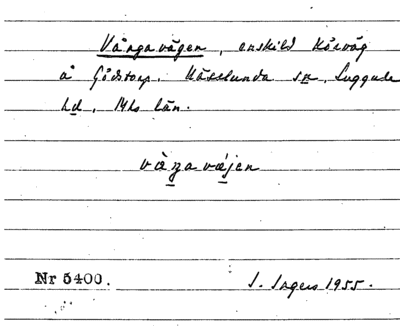 Vångavägen, enskild körväg
å Gödstorp. Käselunda sn, Luggude
hd, Mhs län.
vàŋavæjen
Nr 5400.
S. Ingers 1955.